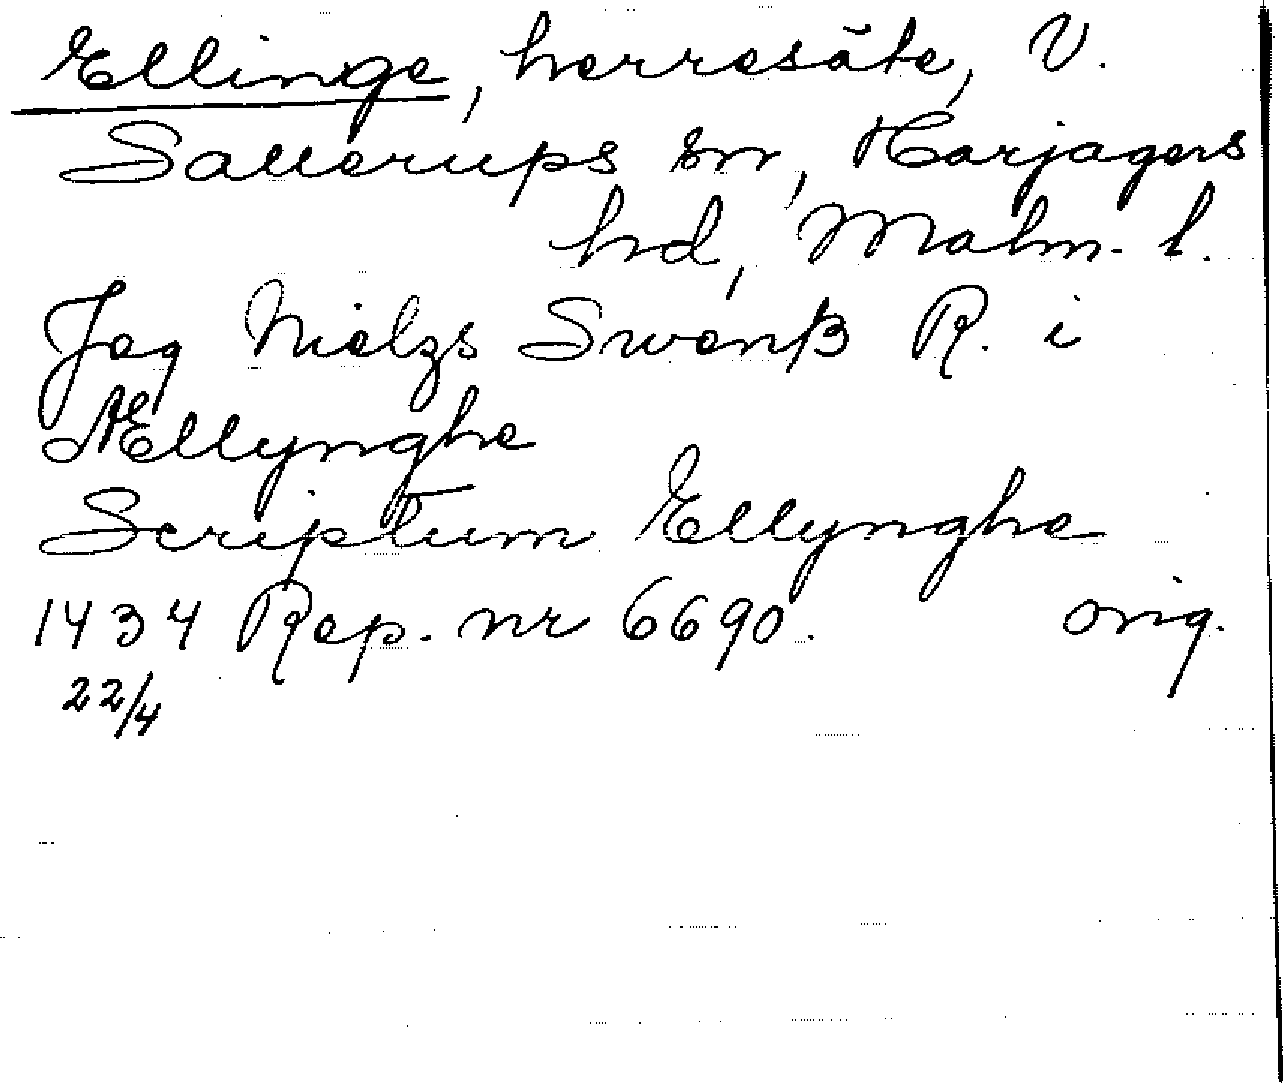 Ellinge, herresäte, V.
Sallerups sn, Harjagers
hd, Malm. l.
Jeg Nielzs Swenß R. i
Ællynghe
Scriptum Ellynghe
1434 Rep. nr 6690. orig.
22/4